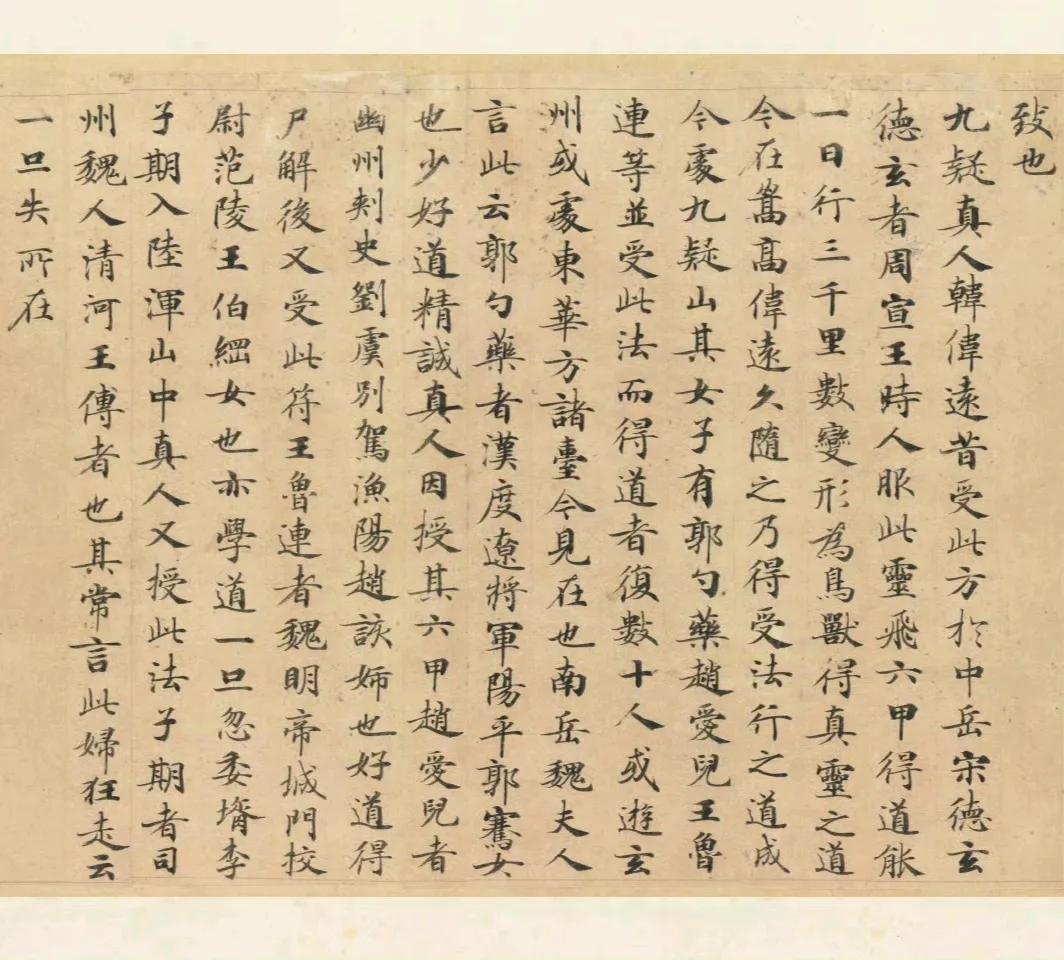 致也
九疑真人韓偉遠昔受此方於中岳宋德玄
德玄者周宣王時人服此靈飛六甲得道能
一日行三千里數變形為鳥獸得真靈之道
今在嵩高偉遠久隨之乃得受法行之道成
今處九疑山其女子有郭勺藥趙愛兒王魯
連等並受此法而得道者復數十人或遊玄
州或處東華方諸臺今見在也南岳魏夫人
言此云郭勺藥者漢度遼將軍陽平郭騫女
也少好道精誠真人因授其六甲趙愛兒者
幽州刾史劉虞別駕漁陽趙該姉也好道得
尸解後又受此符王魯連者魏明帝城門挍
尉范陵王伯綱女也亦學道一旦忽委壻李
子期入陸渾山中真人又授此法子期者司
州魏人清河王傅者也其常言此婦狂走云
一旦失所在